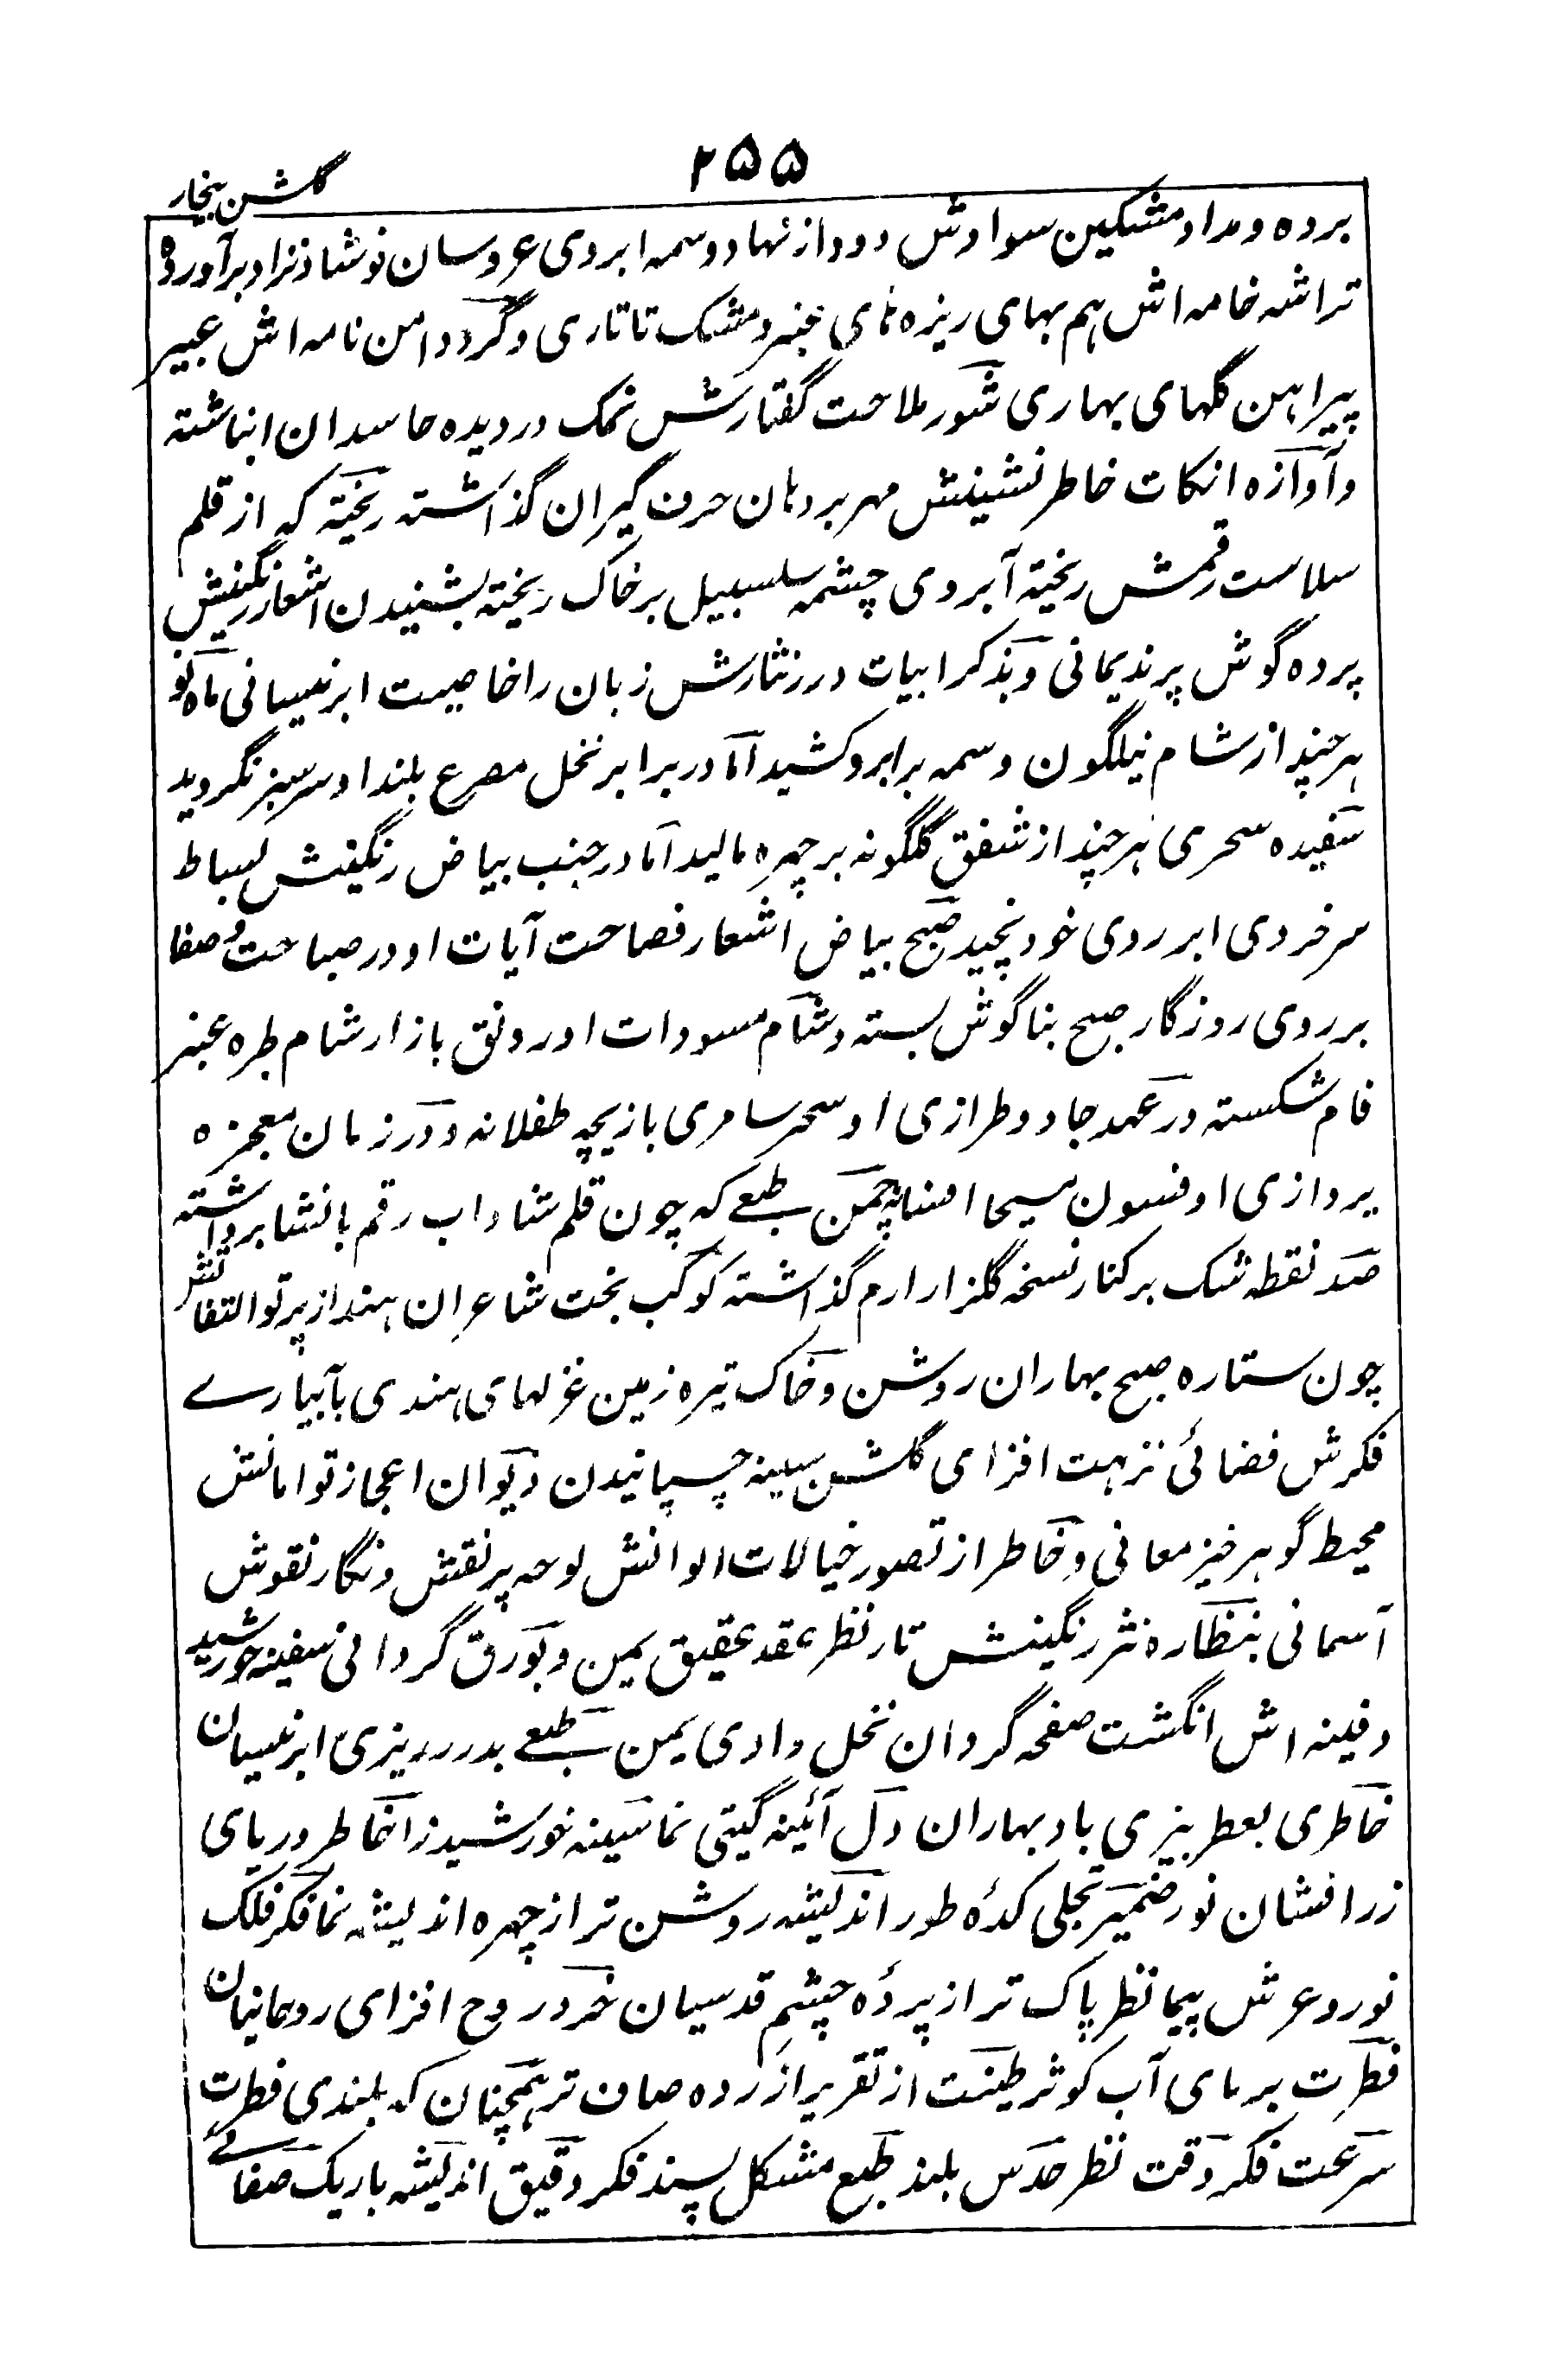 ۲۵۵
گلشن بیخار
برده و مداد مشکین سوادش دود از نهاد و سمه ابروی عروسان نوشاد نژاد برآورده
تراشه خامه اش هم بهای ریزه های عنبر و مشک تاتاری و گرد دامن نامه اش عبیر
پیراهن گلهای بهاری شور ملاحت گفتارش نمک در دیده حاسدان انباشته
و آوازه انکات خاطر نشینش مهر بر دهان حرف گیران گذاشته ریخته که از قلم
سلاست رقمش ریخته آبروی چشمه سلسبیل بر خاک ریخته بشنیدن اشعار رنگینش
پرده گوش پرند یمانی و بذکر ابیات درر نثارش زبان را خاصیت ابر نیسانی ماه نو
هر چند از شام نیلگون وسمه بر ابرو کشید اما در برابر نخل مصرع بلند او سرسبز نگردید
سفیده سحری هر چند از شفق گلگونه بر چهره مالید اما در جنب بیاض رنگینش بساط
سرخروی ابر روی خود نچید صبح بیاض اشعار فصاحت آیات او در صباحت و صفا
بر روی روزگار صبح بناگوش بسته و شام مسودات او رونق بازار شام طره عنبر
فام شکسته در عهد جادو طرازی او سحر سامری بازیچه طفلانه و در زمان معجزه
پردازی او فسون مسیحا افسانه چمن طبعے که چون قلم شاداب رقم بانشا برداشته
صد نقطه شک بر کنار نسخه گلزار ارم گذاشته کوکب بخت شاعران هند از پرتو التفاتش
چون ستاره صبح بهاران روشن و خاک تیره زمین غزلهای هندی بآبیارے
فکرش فضائی نزهت افزای گلشن سینه چسپانیدن دیوان اعجاز توامانش
محیط گوهر خیز معانی و خاطر از تصور خیالات الوانش لوحه پر نقش و نگار نقوش
آسمانی بنظاره نثر رنگینش تار نظر عقد عقیق یمن و بورق گردانی سفینه خورشید
دفینه اش انگشت صفحه گردان نخل وادی یمن طبعے بدرر ریزی ابر نیسان
خاطری بعطر بیزی باد بهاران دل آئینه گیتی نما سینه خورشید زا خاطر دریای
زر افشان نور ضمیر تجلی کدۀ طور اندیشه روشن تر از چهره اندیشه نما فکر فلک
نورد عرش پیما نظر پاک تر از پردۀ چشم قدسیان خرد روح افزای روحانیان
فطرت بر مای آب کوثر طینت از تقریر ازرده صاف تر همچنان که بلندی فطرت
سرعت فکر دقت نظر حدس بلند طبع مشکل پسند فکر دقیق اندیشه باریک صفائے